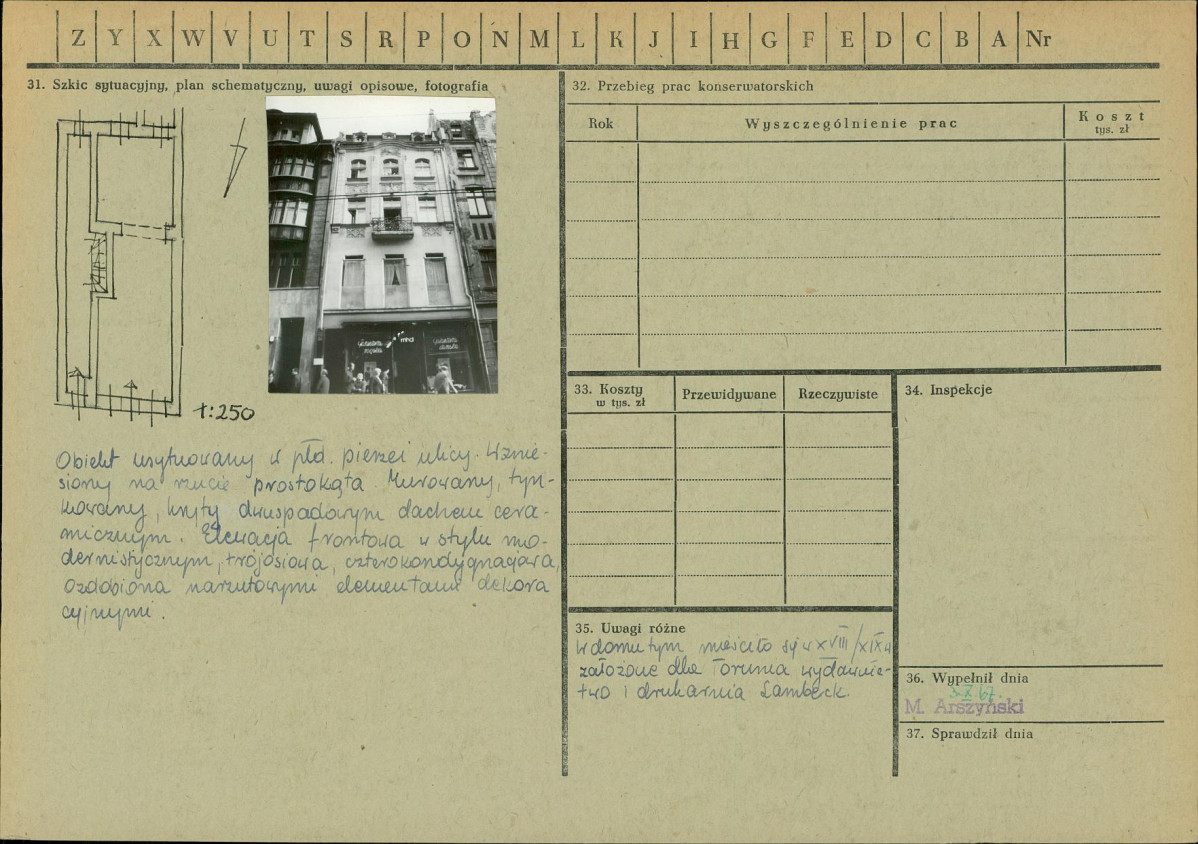 Z Y X W V U T S R P O N M L K J I H G F E D C B A Nr
31. Szkic sytuacyjny, plan schematyczny, uwagi opisowe, fotografia
1:250
mhd
Obiekt usytuowany w płd. pierzei ulicy. Wznie-
siony na rzucie prostokąta. Murowany, tyn-
kowany, kryty dwuspadowym dachem cera-
micznym. Elewacja frontowa w stylu mo-
dernistycznym, trójosiowa, czterokondygnacjowa,
ozdobiona narzutowymi elementami dekora
cyjnymi.
32. Przebieg prac konserwatorskich
Rok
Wyszczególnienie prac
Koszt
tys. zł
33. Koszty
w tys. zł
Przewidywane
Rzeczywiste
34. Inspekcje
35. Uwagi różne
W domu tym mieściło się w XVIII/XIX w
założone dla Torunia wydawnic-
two i drukarnia Lambeck.
36. Wypełnił dnia
3.X.67.
M. Arszyński
37. Sprawdził dnia